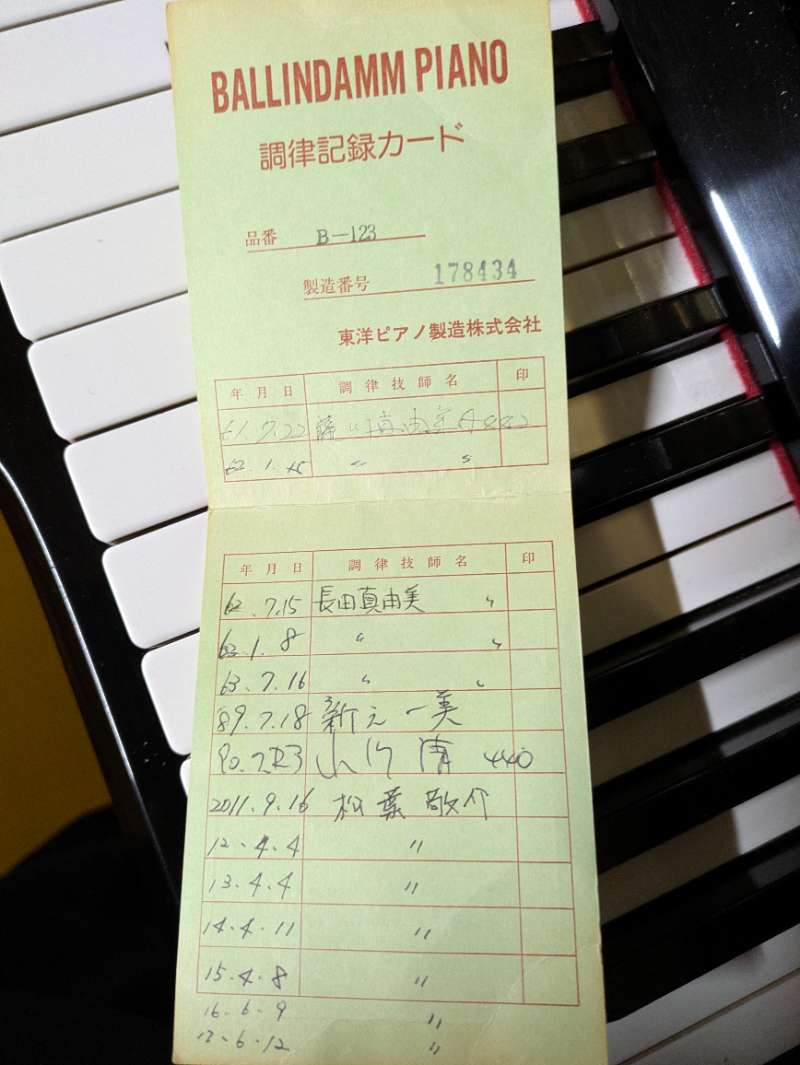 BALLINDAMM PIANO
調律記録カード
品番 B-123
製造番号 178434
東洋ピアノ製造株式会社
年月日 調律技師名 印
61.7.22 由美 A440
62.1.15 〃 〃
年月日 調律技師名 印
62.7.15 長田真由美 〃
63.1.8 〃 〃
63.7.16 〃 〃
'89.7.18 新元一美
90.7.23 清 440
2011.9.16 松葉敬介
12.4.4 〃
13.4.4 〃
14.4.11 〃
15.4.8 〃
16.6.9 〃
6.12 〃